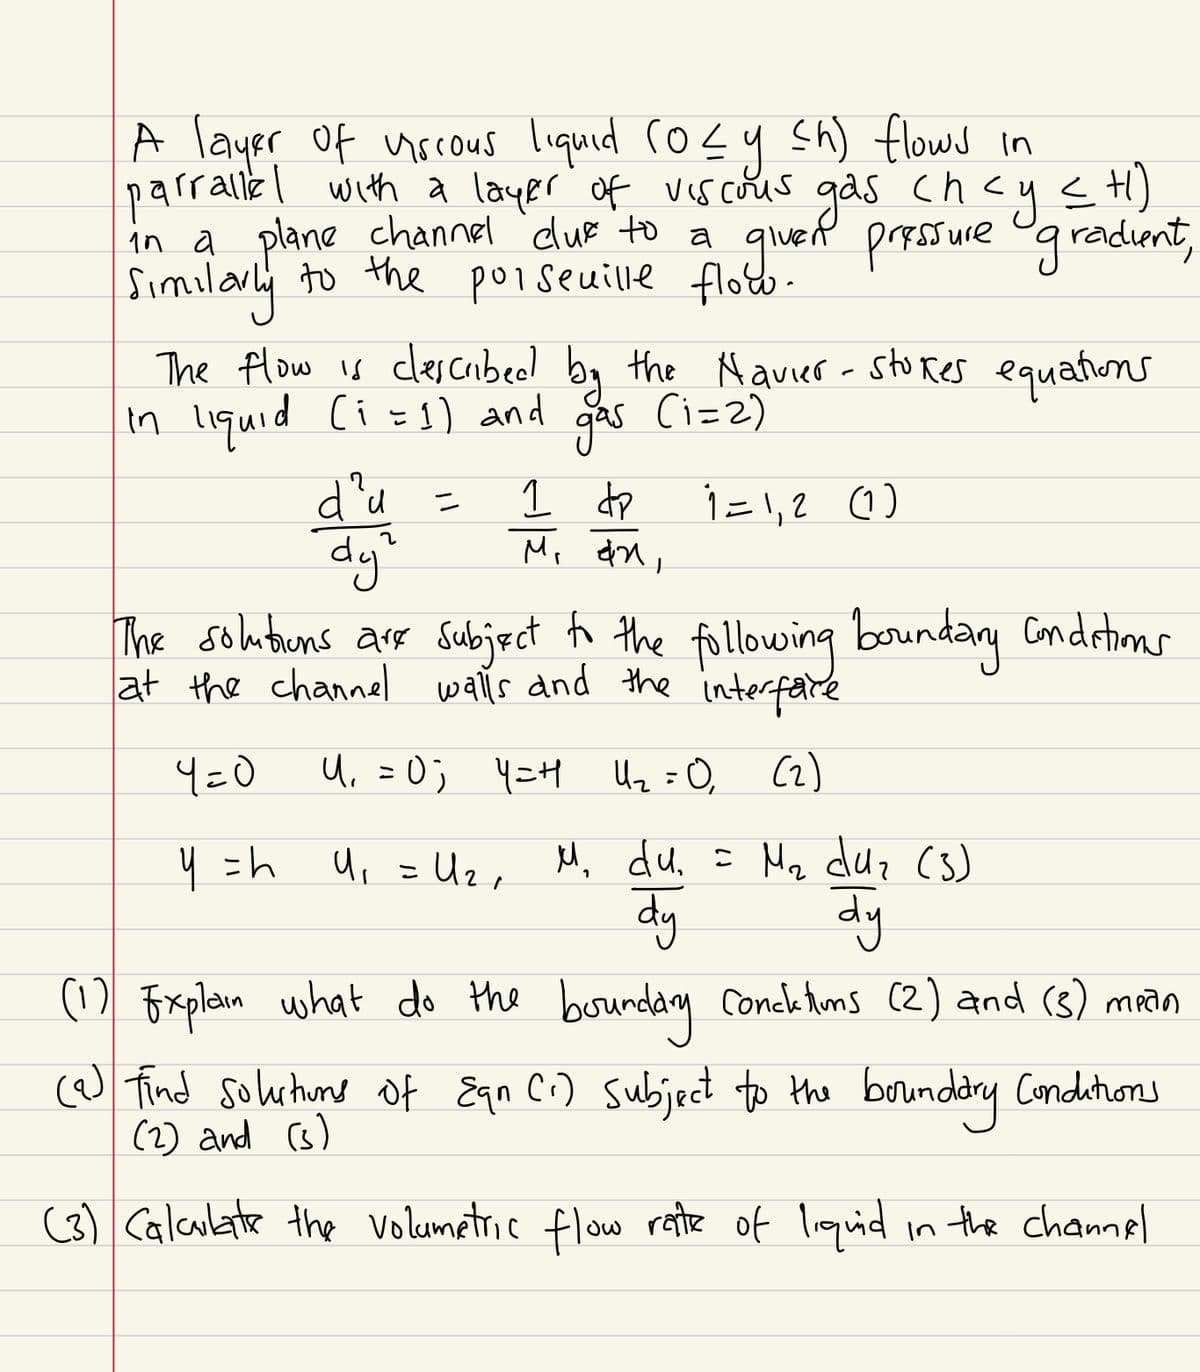 A layer of viscous liquid (0 ≤ y ≤ h) flows in
parrallel with a layer of viscous gas (h < y ≤ H)
in a plane channel due to a given pressure gradient,
Similarly to the poiseuille flow.
The flow is described by the Navier - stokes equations
in liquid (i = 1) and gas (i=2)
d²u/dy² = 1/Mi dp/dx, i=1,2 (1)
The solutions are subject to the following boundary Conditions
at the channel walls and the interface
y=0 u₁ = 0; y=H u₂ = 0, (2)
y =h u₁ = u₂, M₁ du₁/dy = M₂ du₂/dy (3)
(1) Explain what do the boundary Conditions (2) and (3) mean
(2) Find solutions of Eqn (1) subject to the boundary Conditions
(2) and (3)
(3) Calculate the volumetric flow rate of liquid in the channel